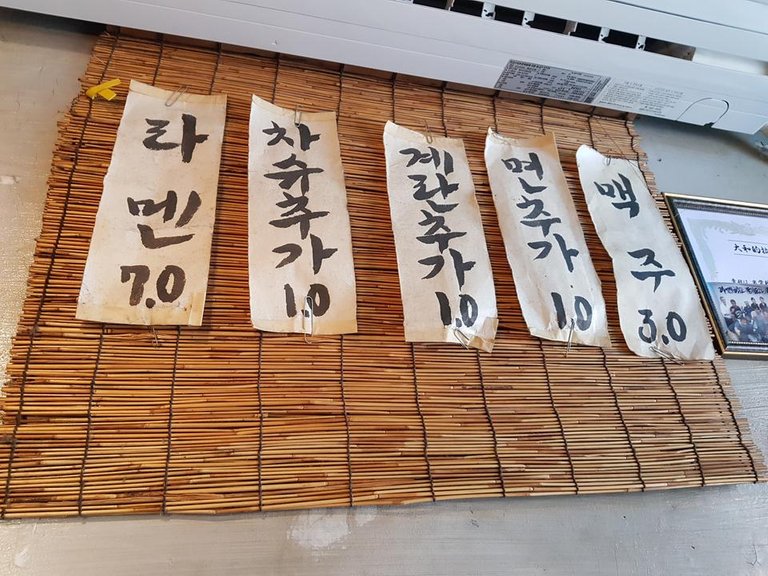 라멘
7.0
차슈추가
1.0
계란추가
1.0
면추가
1.0
맥주
3.0